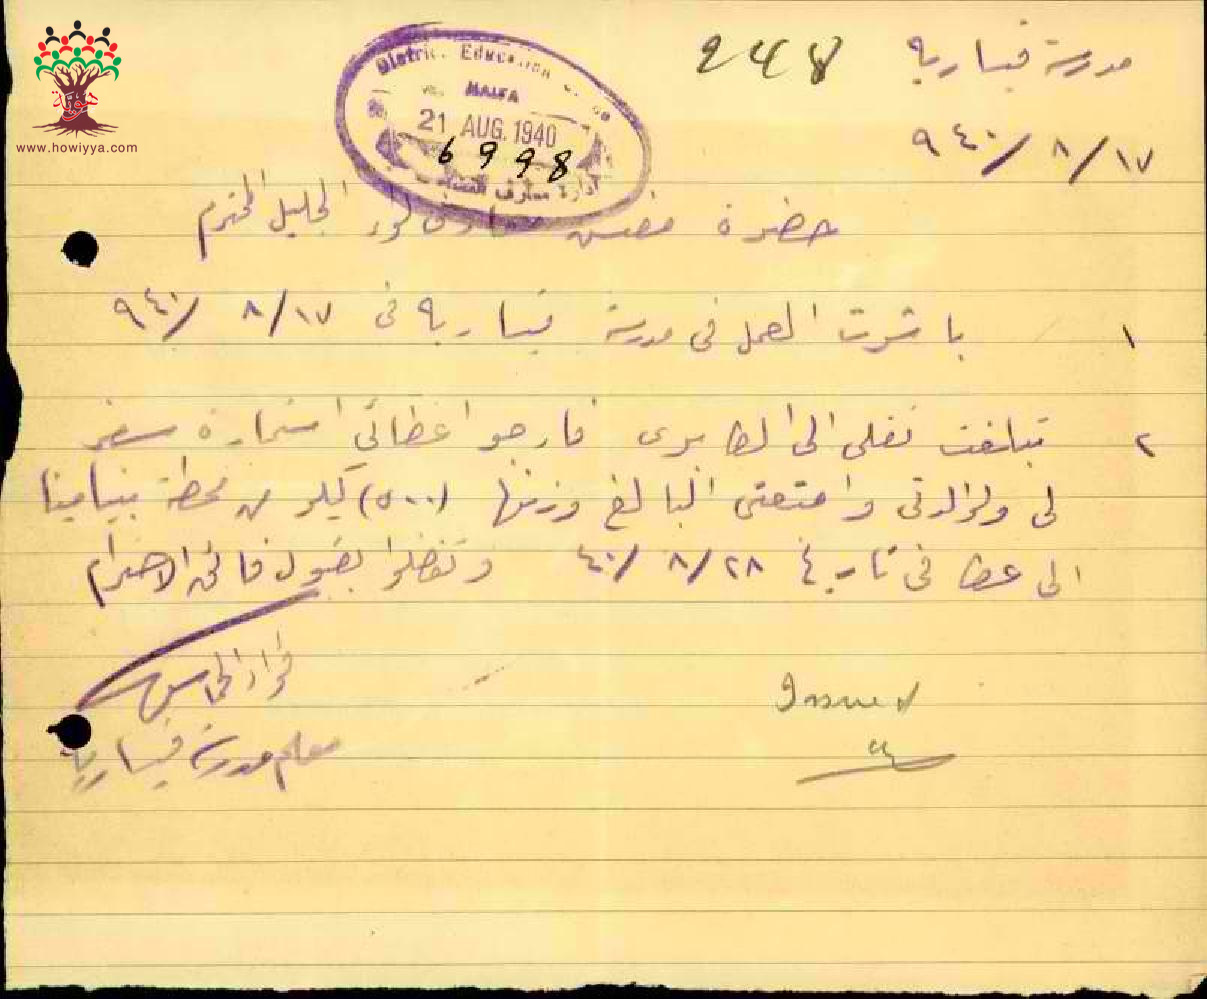 مدرسة قيسارية
248
٩٤٠/٨/١٧
District Education
HAIFA
21 AUG. 1940
6998
ادارة معارف
حضرة مفتش معارف لواء الجليل المحترم
١ باشرت العمل في مدرسة قيسارية في ٩٤٠/٨/١٧
٢ تبلغت نقلي الى الطابرى فارجو اعطائي استمارة سفر
لي ولوالدتي وامتعتي البالغ وزنها (٥٠٠) كيلو من محطة بنيامينا
الى عكا في تاريخ ٤٠/٨/٢٨ وتفضلوا بقبول فائق الاحترام
فؤاد
معلم مدرسة قيسارية
Issued
هوية
www.howiyya.com